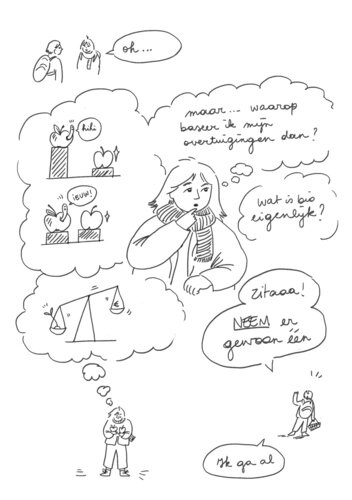 oh...
maar... waarop
baseer ik mijn
overtuigingen dan?
hihi
ieuw!
wat is bio
eigenlijk?
€
Zitaaa!
NEEM er
gewoon één
Ik ga al